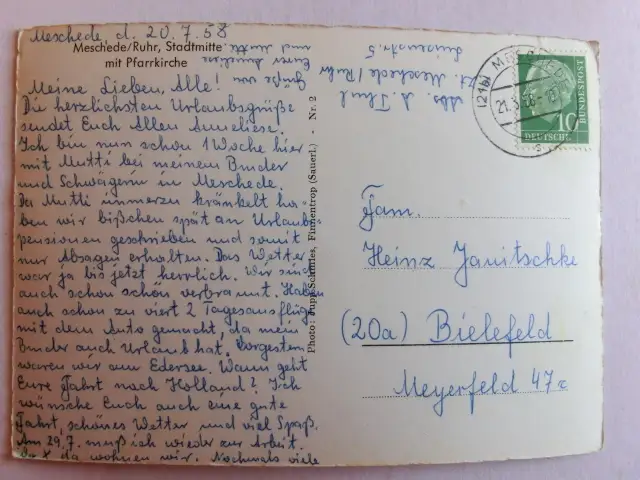 Meschede, d. 20.7.58
Meschede/Ruhr, Stadtmitte
mit Pfarrkirche
Meine Lieben, Alle!
Die herzlichsten Urlaubsgrüße
sendet Euch Allen Anneliese.
Ich bin nun schon 1 Woche hier
mit Mutti bei meinem Bruder
und Schwägerin in Meschede.
Da Mutti immerzu kränkelt ha-
ben wir bißchen spät an Urlaubs-
pensionen geschrieben und somit
nur Absagen erhalten. Das Wetter
war ja bis jetzt herrlich. Wir sind
auch schon schön verbrannt. Haben
auch schon zu viert 2 Tagesausflüge
mit dem Auto gemacht, da mein
Bruder auch Urlaub hat. Vorgestern
waren wir am Edersee. Wann geht
Eure Fahrt nach Holland? Ich
wünsche Euch auch eine gute
Fahrt, schönes Wetter und viel Spaß.
Am 29.7. muß ich wieder zur Arbeit.
da wohnen wir. Nochmals viele
Grüße von
Eurer Anneliese
und Mutti
Abs. A.
Meschede/Ruhr
5
Photo: Pupp-Schöttes, Finnentrop (Sauerl.) - Nr. 2
(21b) MESCHEDE
DEUTSCHE BUNDESPOST
10
Fam.
Heinz Janitschke
(20a) Bielefeld
Meyerfeld 47c